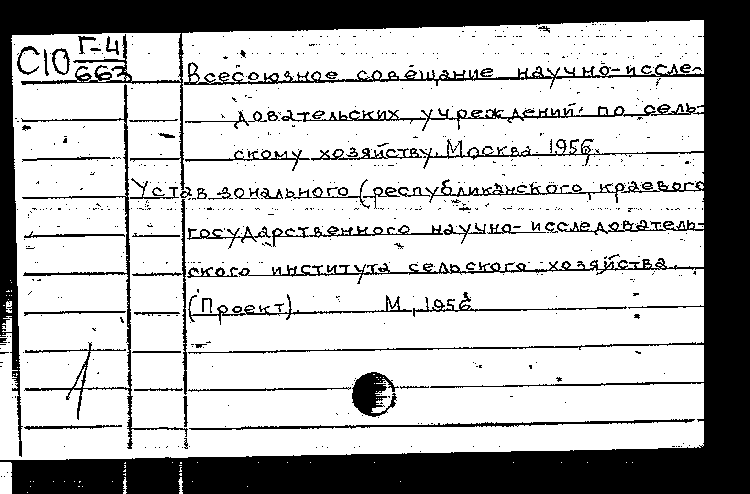 С10 Г-41/663
Всесоюзное совещание научно-иссле-
довательских учреждений по сель-
скому хозяйству. Москва. 1956.
Устав зонального (республиканского, краевого
государственного научно-исследователь-
ского института сельского хозяйства.
(Проект). М., 1956
1